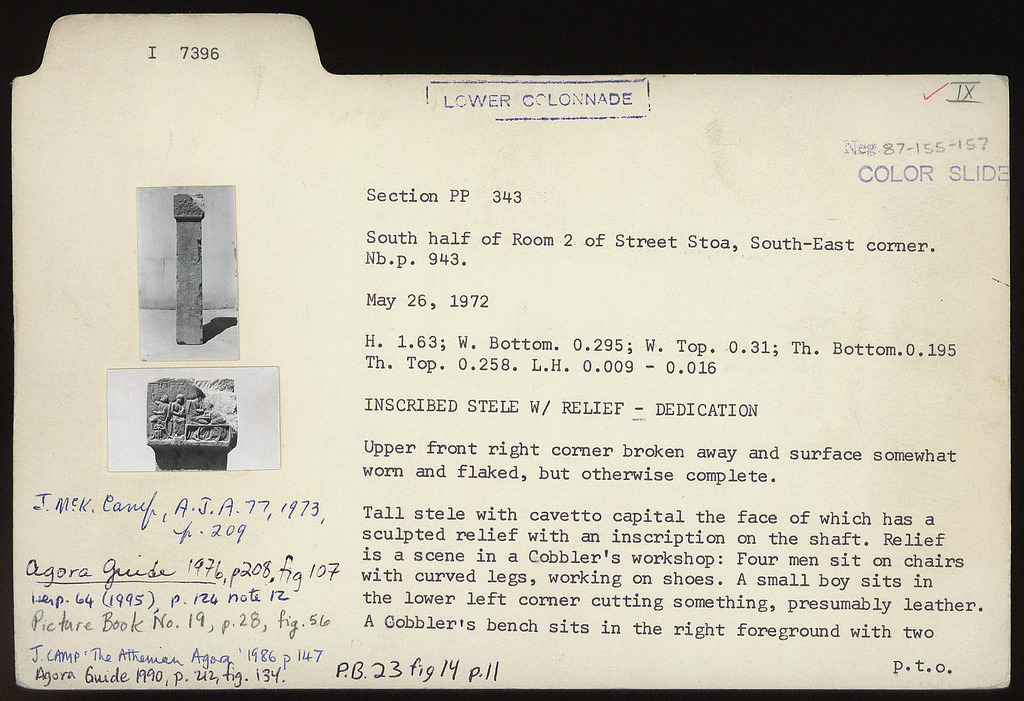 I 7396
LOWER COLONNADE
IX
Neg. 87-155-157
COLOR SLIDE
Section PP 343
South half of Room 2 of Street Stoa, South-East corner.
Nb.p. 943.
May 26, 1972
H. 1.63; W. Bottom. 0.295; W. Top. 0.31; Th. Bottom.0.195
Th. Top. 0.258. L.H. 0.009 - 0.016
INSCRIBED STELE W/ RELIEF - DEDICATION
Upper front right corner broken away and surface somewhat
worn and flaked, but otherwise complete.
Tall stele with cavetto capital the face of which has a
sculpted relief with an inscription on the shaft. Relief
is a scene in a Cobbler's workshop: Four men sit on chairs
with curved legs, working on shoes. A small boy sits in
the lower left corner cutting something, presumably leather.
A Cobbler's bench sits in the right foreground with two
p.t.o.
J. McK. Camp, A.J.A. 77, 1973,
p. 209
Agora Guide 1976, p208, fig 107
Hesp. 64 (1995), p. 124 note 12
Picture Book No. 19, p. 28, fig. 56
J. CAMP 'The Athenian Agora' 1986 p 147
Agora Guide 1990, p. 212, fig. 134.
P.B. 23 fig 14 p.11